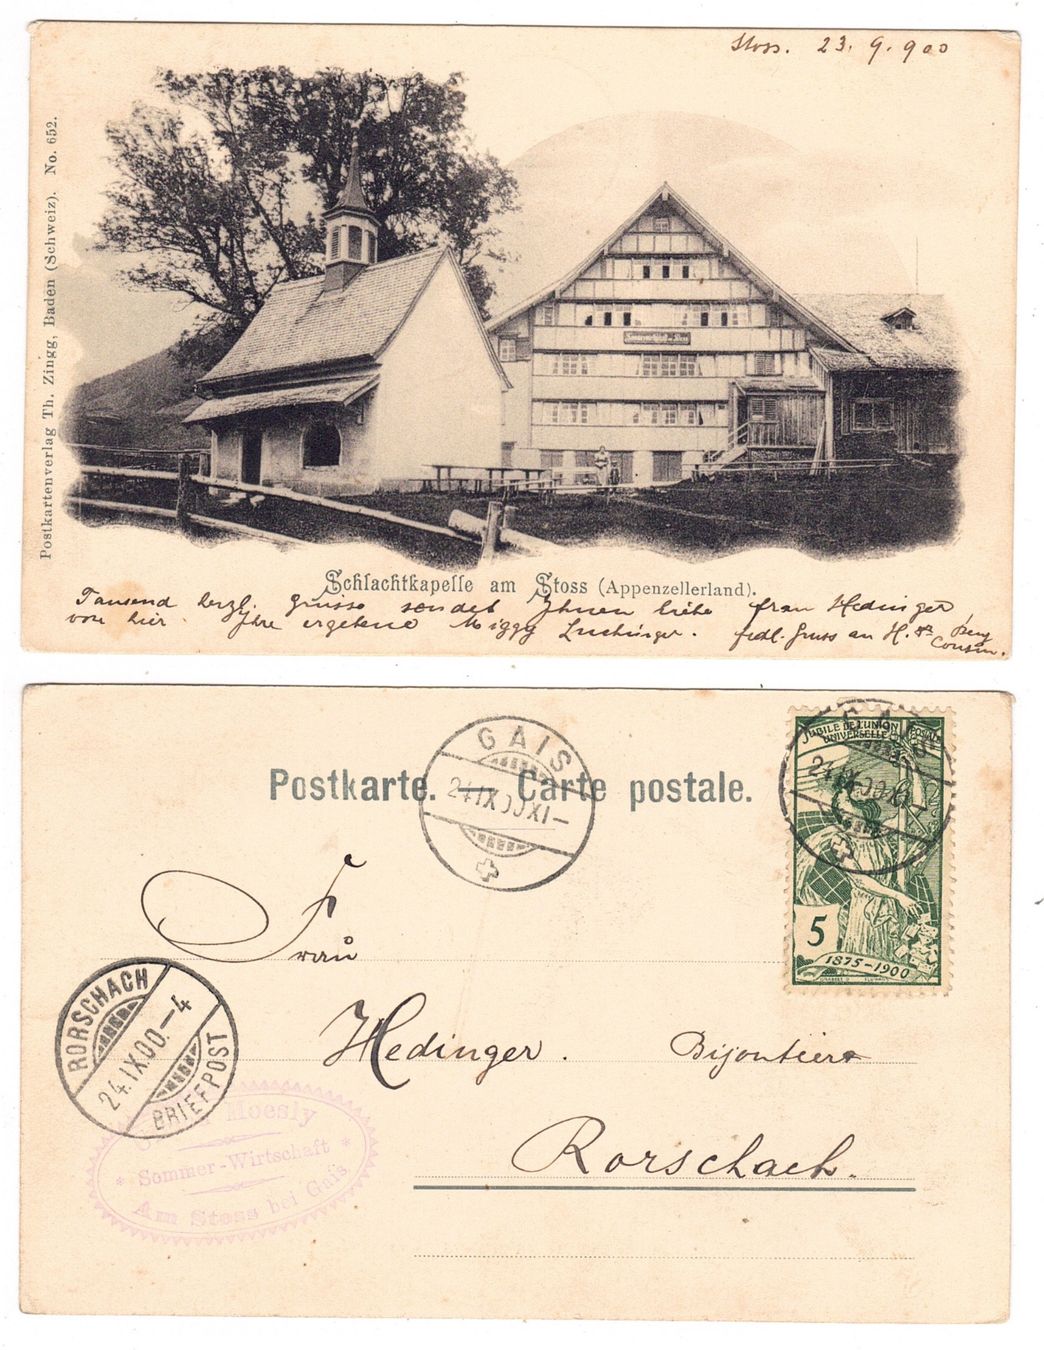 Stoss. 23. 9. 900
Postkartenverlag Th. Zingg, Baden (Schweiz). No. 652.
Schlachtkapelle am Stoss (Appenzellerland).
Tausend herzl. Grüsse sendet Ihnen liebe Frau Hedinger
von hier. Ihre ergebene Miggy
frdl. Gruss an H.
Cousin.
Postkarte. — Carte postale.
GAIS
24.IX.00.XI-
JUBILÉ DE L'UNION POSTALE
UNIVERSELLE
GAIS
24.IX.00.XI-
5
1875-1900
Frau
Hedinger. Bijoutiers
Rorschach.
RORSCHACH
24.IX.00.-4
BRIEFPOST
Moesly
* Sommer-Wirtschaft *
Am Stoss bei Gais.